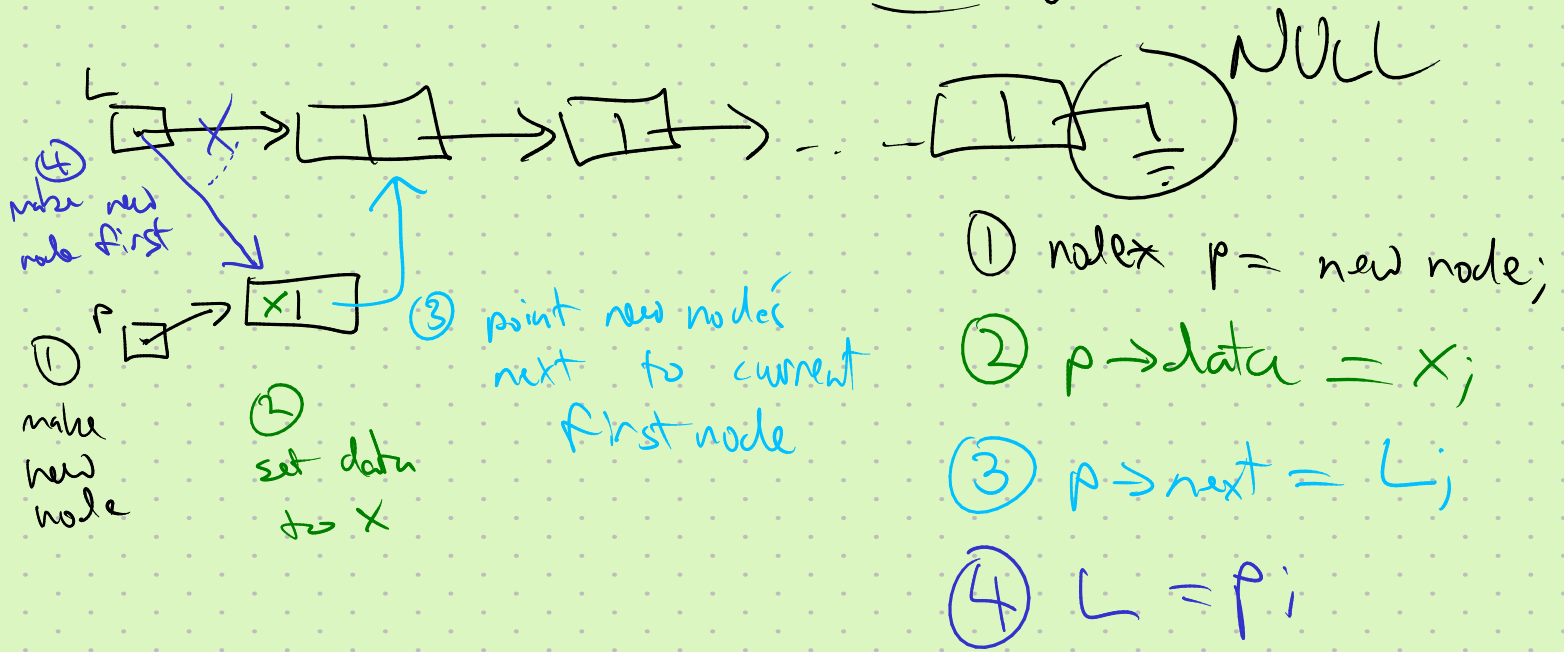 NULL
L
④
make new
node first
P
x
①
make
new
node
②
set data
to x
③ point new nodes'
next to current
first node
① node* p = new node;
② p→data = x;
③ p→next = L;
④ L = p;